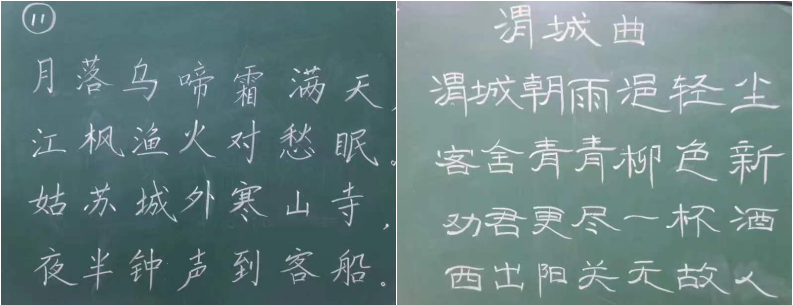 11
月落乌啼霜满天,
江枫渔火对愁眠。
姑苏城外寒山寺,
夜半钟声到客船。
渭城曲
渭城朝雨浥轻尘
客舍青青柳色新
劝君更尽一杯酒
西出阳关无故人